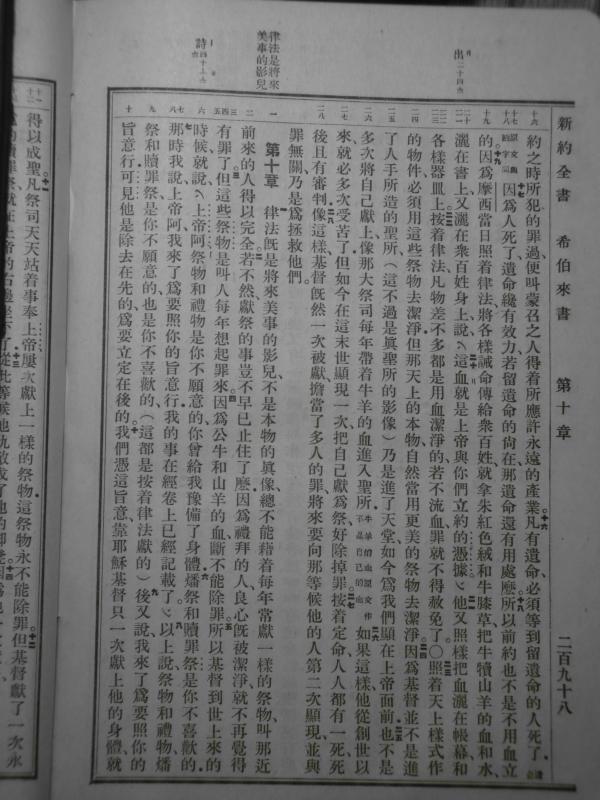 新約全書　希伯來書　第十章　二百九十八
出二十四 八
律法是將來美事的影兒
詩四十 六
約之時所犯的罪過便叫蒙召之人得着所應許永遠的產業凡有遺命必須等到留遺命的人死了
因爲人死了遺命纔有效力若留遺命的尙在那遺命還有用處麽所以前約也不是不用血立
的因爲摩西當日照着律法將各樣誡命傳給衆百姓就拿朱紅色絨和牛膝草把牛犢山羊的血和水
灑在書上又灑在衆百姓身上說這血就是上帝與你們立約的憑據他又照樣把血灑在帳幕和
各樣器皿上按着律法凡物差不多都是用血潔淨的若不流血罪就不得赦免了〇照着天上樣式作
的物件必須用這些祭物去潔淨但那天上的本物自然當用更美的祭物去潔淨因爲基督並不是進
了人手所造的聖所（這不過是眞聖所的影像）乃是進了天堂如今爲我們顯在上帝面前也不是
多次將自己獻上像那大祭司每年帶着牛羊的血進入聖所牛羊的血原文作不是自己的血如果這樣他從創世以
來就必多次受苦了但如今在這末世顯現一次把自己獻爲祭好除掉罪按着定命人人都有一死死
後且有審判像這樣基督旣然一次被獻擔當了多人的罪將來要向那等候他的人第二次顯現並與
罪無關乃是爲拯救他們
第十章　律法旣是將來美事的影兒不是本物的眞像總不能藉着每年常獻一樣的祭物叫那近
前來的人得以完全若不然獻祭的事豈不早已止住了麽因爲禮拜的人良心旣被潔淨就不再覺得
有罪了但這些祭物是叫人每年想起罪來因爲公牛和山羊的血斷不能除罪所以基督到世上來的
時候就說上帝阿祭物和禮物是你不願意的你曾給我豫備了身體燔祭和贖罪祭是你不喜歡的
那時我說上帝阿我來了爲要照你的旨意行我的事在經卷上已經記載了以上說祭物和禮物燔
祭和贖罪祭是你不願意的也是你不喜歡的（這都是按着律法獻的）後又說我來了爲要照你的
旨意行可見他是除去在先的爲要立定在後的我們憑這旨意靠耶穌基督只一次獻上他的身體就
得以成聖凡祭司天天站着事奉上帝屢次獻上一樣的祭物這祭物永不能除罪但基督獻了一次永